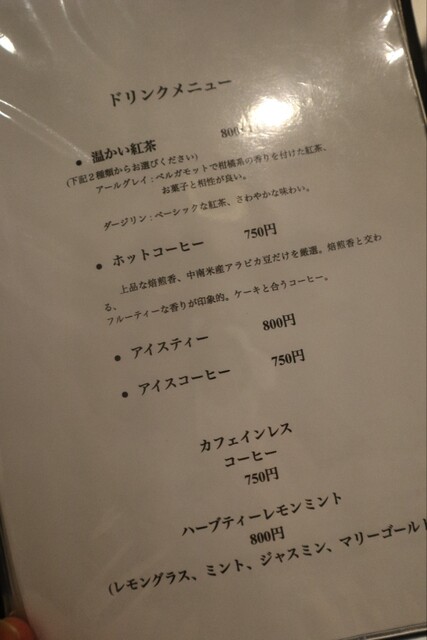 ドリンクメニュー
● 温かい紅茶 800円
(下記2種類からお選びください)
アールグレイ：ベルガモットで柑橘系の香りを付けた紅茶。
お菓子と相性が良い。
ダージリン：ベーシックな紅茶、さわやかな味わい。
● ホットコーヒー 750円
上品な焙煎香、中南米産アラビカ豆だけを厳選。焙煎香と交わ
る、
フルーティーな香りが印象的。ケーキと合うコーヒー。
● アイスティー 800円
● アイスコーヒー 750円
カフェインレス
コーヒー
750円
ハーブティーレモンミント
800円
(レモングラス、ミント、ジャスミン、マリーゴールド